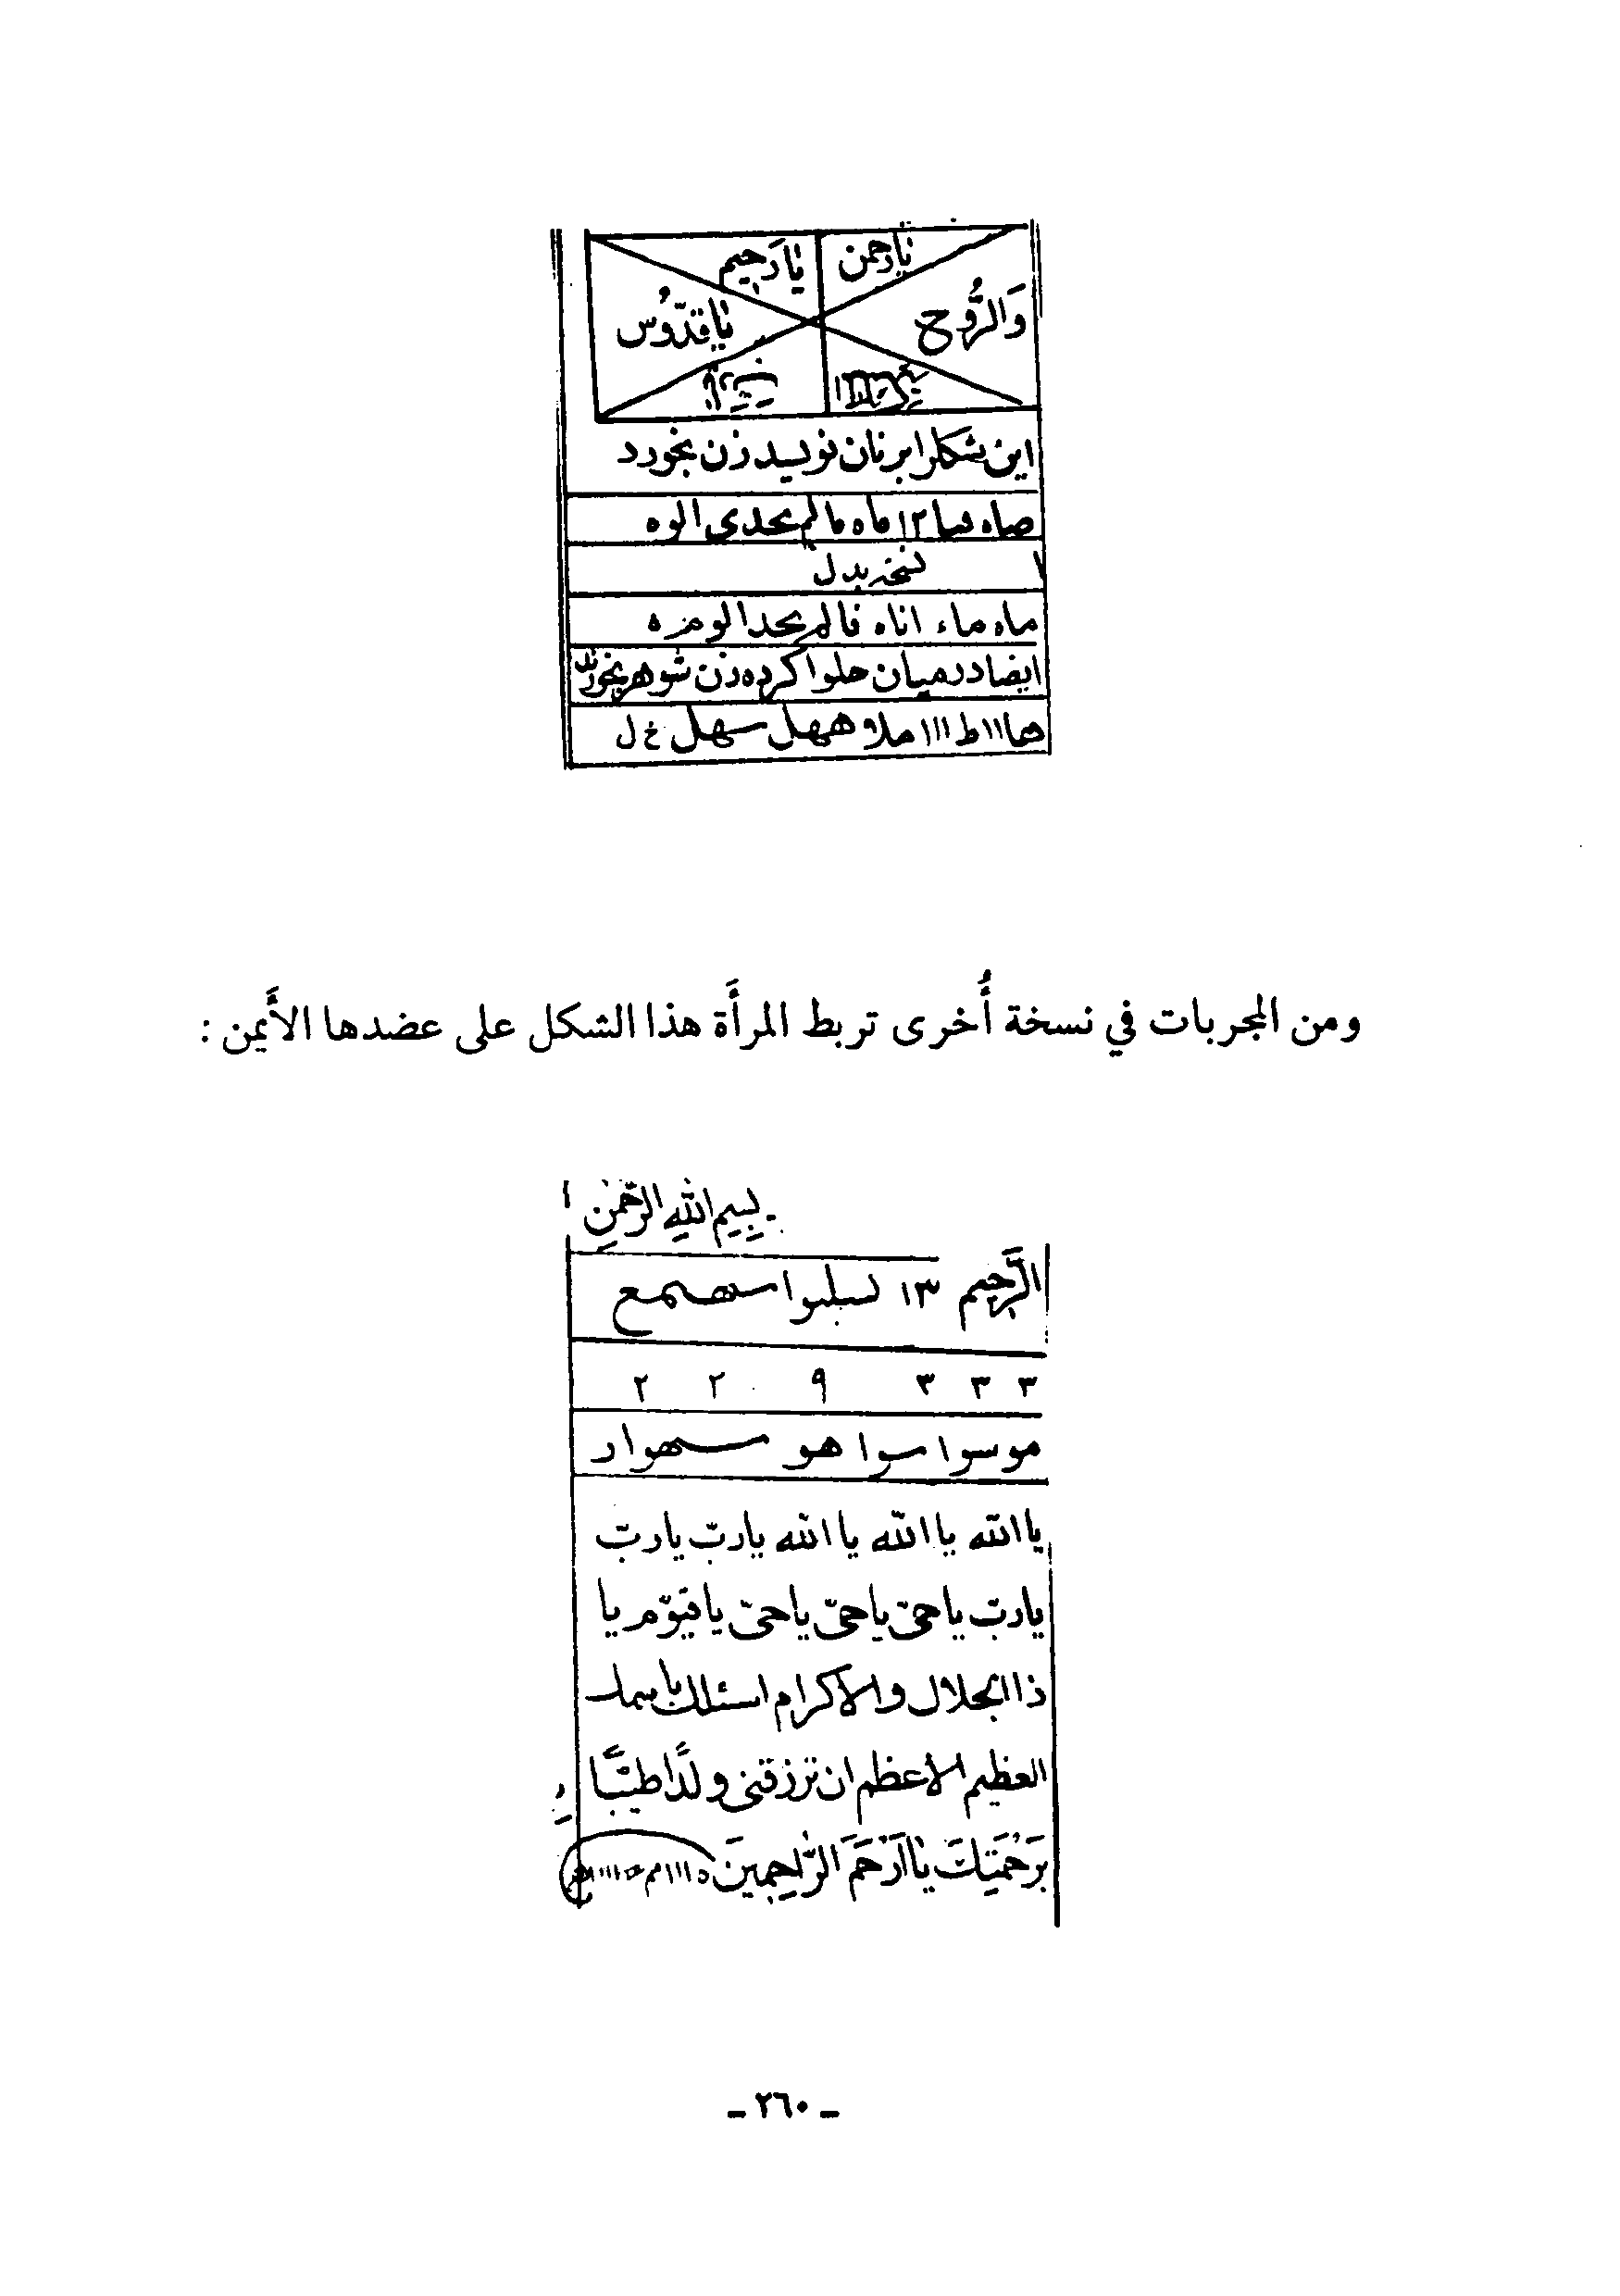 يا رحمن يا رحيم
والرُّوح يا قدّوس
اين شكلرا بر نان نويسد زن بخورد
نسخه بدل
ماه ماء اناه فالم بحد الومزه
ايضا در ميان حلوا كرده زن شوهر بخورد
سهل خ ل
ومن المجربات في نسخة أُخرى تربط المرأَة هذا الشكل على عضدها الأَيمن :
بِسِمِ اللهِ الرَّحمٰنِ
الرَّحيم ١٣
٣ ٣ ٣ ٩ ٢ ٢
موسوا سوا هو سهوار
يا الله يا الله يا الله يا ربّ يا ربّ
يا ربّ يا حىّ يا حىّ يا حىّ يا قيوّم يا
ذا الجلال والاكرام اسئلك باسمك
العظيم الاعظم ان ترزقنى ولدًا طيّبًا
بِرَحْمَتِكَ يٰا اَرْحَمَ الرّٰاحِمينَ
ـ ٢٦٠ ـ